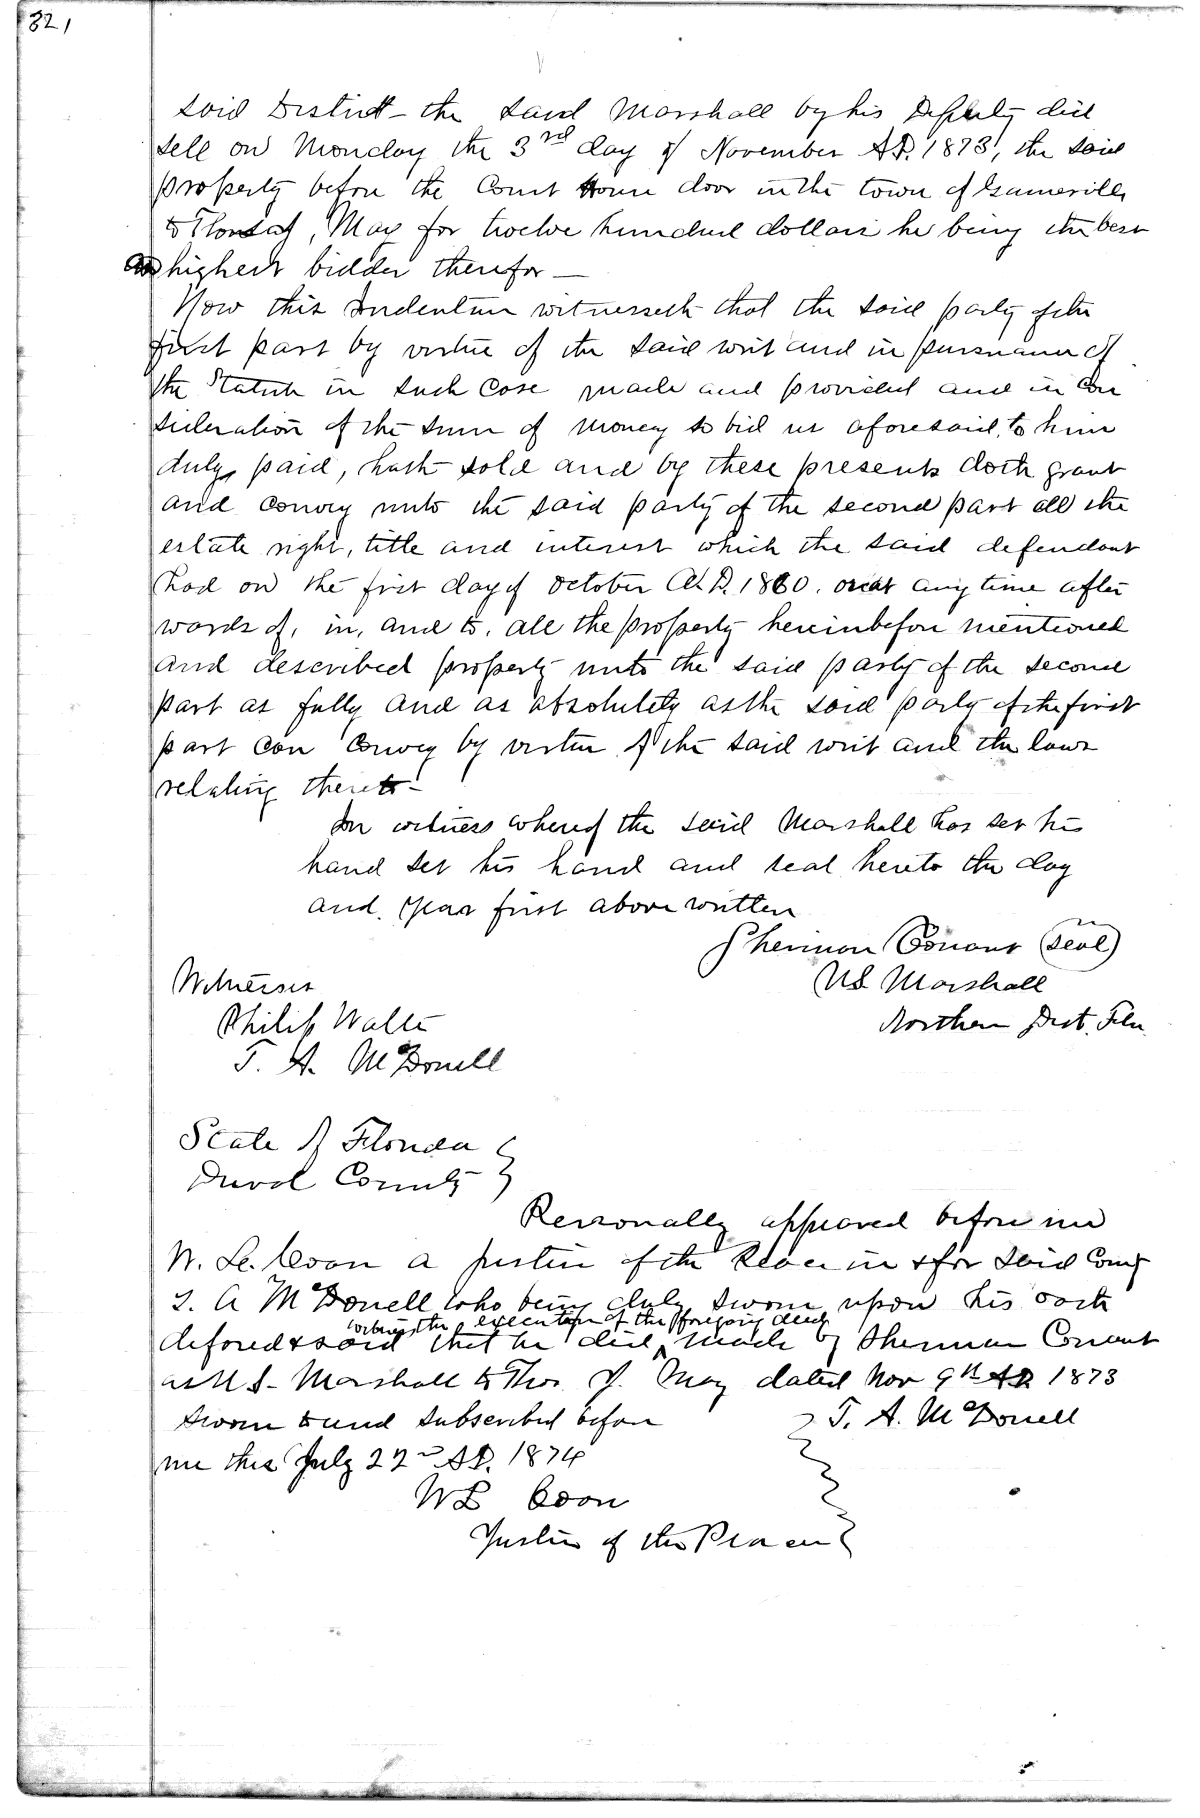 321
said District - the said Marshall by his Deputy did
sell on Monday the 3rd day of November A.D. 1873, the said
property before the Court House door in the town of Gainesville
to Thos J, May for twelve hundred dollars he being the best
and highest bidder therefor -
Now this Indenture witnesseth that the said party of the
first part by virtue of the said writ and in pursuance of
the Statute in such case made and provided and in con
sideration of the sum of money so bid as aforesaid, to him
duly paid, hath sold and by these presents doth grant
and convey unto the said party of the second part all the
estate right, title and interest which the said defendant
had on the first day of October A.D. 1860. or at any time after
wards of, in, and to, all the property hereinbefore mentioned
and described property unto the said party of the second
part as fully and as absolutely as the said party of the first
part can convey by virtue of the said writ and the laws
relating thereto -
In witness whereof the said Marshall has set his
hand set his hand and seal hereto the day
and year first above written
Sherman Conant (seal)
US Marshall
Northern Dist. Fla
Witnesses
Philip Walter
T. A. McDonell
State of Florida
Duval County
Personally appeared before me
W. L. Coon a Justice of the Peace in & for said County
T. A McDonell who being duly sworn upon his oath
witness the execution of the foregoing deed
deposed & said that he did ^ made by Sherman Conant
as U S. Marshall to Thos J. May dated Nov 9th AD 1873
Sworn to and subscribed before
T. A. McDonell
me this July 22nd A.D. 1874
W L Coon
Justice of the Peace